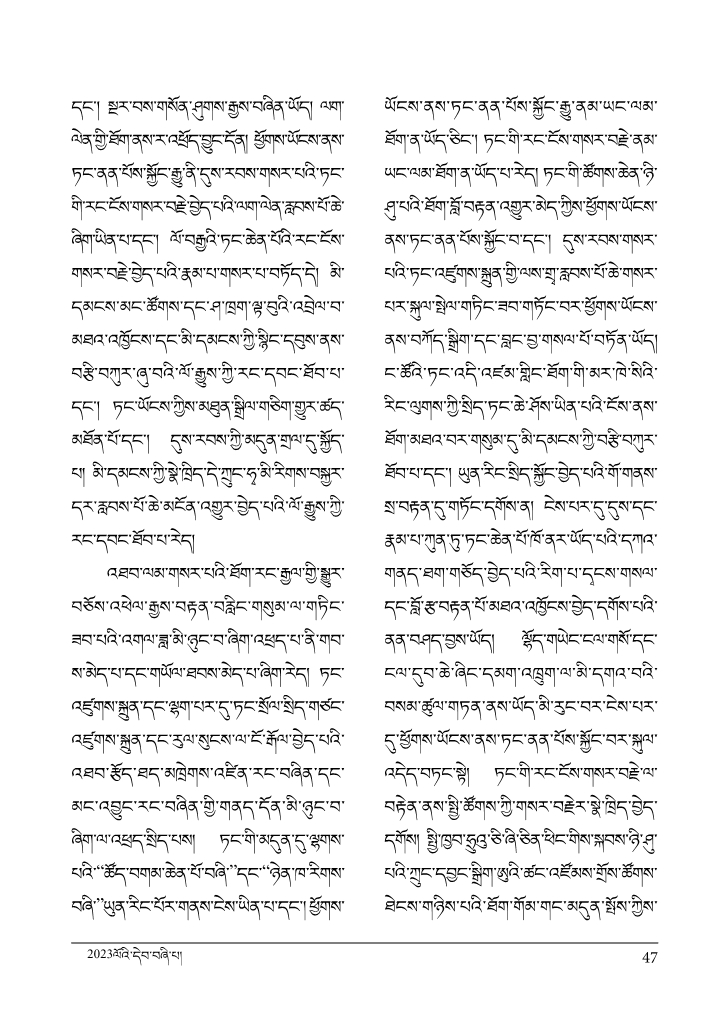 དང་། སྔར་བས་གསོན་ཤུགས་རྒྱས་བཞིན་ཡོད། ལག་
ལེན་གྱི་ཐོག་ནས་ར་འཕྲོད་བྱུང་དོན། ཕྱོགས་ཡོངས་ནས་
ཏང་ནན་པོས་སྐྱོང་རྒྱུ་ནི་དུས་རབས་གསར་པའི་ཏང་
གི་རང་ངོས་གསར་བརྗེ་བྱེད་པའི་ལག་ལེན་རླབས་པོ་ཆེ་
ཞིག་ཡིན་པ་དང་། ལོ་བརྒྱའི་ཏང་ཆེན་པོའི་རང་ངོས་
གསར་བརྗེ་བྱེད་པའི་རྣམ་པ་གསར་པ་བཏོད་དེ། མི་
དམངས་མང་ཚོགས་དང་ཤ་ཁྲག་ལྟ་བུའི་འབྲེལ་བ་
མཐའ་འཁྱོངས་དང་མི་དམངས་ཀྱི་སྙིང་དབུས་ནས་
བརྩི་བཀུར་ཞུ་བའི་ལོ་རྒྱུས་ཀྱི་རང་དབང་ཐོབ་པ་
དང་། ཏང་ཡོངས་ཀྱིས་མཐུན་སྒྲིལ་གཅིག་གྱུར་ཚད་
མཐོན་པོ་དང་། དུས་རབས་ཀྱི་མདུན་གྲལ་དུ་སྐྱོད་
པ། མི་དམངས་ཀྱི་སྣེ་ཁྲིད་དེ་ཀྲུང་ཧྭ་མི་རིགས་བསྐྱར་
དར་རླབས་པོ་ཆེ་མངོན་འགྱུར་བྱེད་པའི་ལོ་རྒྱུས་ཀྱི་
རང་དབང་ཐོབ་པ་རེད།
འཐབ་ལམ་གསར་པའི་ཐོག་རང་རྒྱལ་གྱི་སྒྱུར་
བཅོས་འཕེལ་རྒྱས་བརྟན་བརླིང་གསུམ་ལ་གཏིང་
ཟབ་པའི་འགལ་ཟླ་མི་ཉུང་བ་ཞིག་འཕྲད་པ་ནི་གབ་
ས་མེད་པ་དང་གཡོལ་ཐབས་མེད་པ་ཞིག་རེད། ཏང་
འཛུགས་སྐྲུན་དང་ལྷག་པར་དུ་ཏང་སྲོལ་སྲིད་གཙང་
འཛུགས་སྐྲུན་དང་རུལ་སུངས་ལ་ངོ་རྒོལ་བྱེད་པའི་
འཐབ་རྩོད་ཐད་མཁྲེགས་འཛིན་རང་བཞིན་དང་
མང་འབྱུང་རང་བཞིན་གྱི་གནད་དོན་མི་ཉུང་བ་
ཞིག་ལ་འཕྲད་སྲིད་པས། ཏང་གི་མདུན་དུ་ལྷགས་
པའི་“ཚོད་བགམ་ཆེན་པོ་བཞི་”དང་“ཉེན་ཁ་རིགས་
བཞི་”ཡུན་རིང་པོར་གནས་ངེས་ཡིན་པ་དང་། ཕྱོགས་
ཡོངས་ནས་ཏང་ནན་པོས་སྐྱོང་རྒྱུ་ནམ་ཡང་ལམ་
ཐོག་ན་ཡོད་ཅིང་། ཏང་གི་རང་ངོས་གསར་བརྗེ་ནམ་
ཡང་ལམ་ཐོག་ན་ཡོད་པ་རེད། ཏང་གི་ཚོགས་ཆེན་ཉི་
ཤུ་པའི་ཐོག་བློ་བརྟན་འགྱུར་མེད་ཀྱིས་ཕྱོགས་ཡོངས་
ནས་ཏང་ནན་པོས་སྐྱོང་བ་དང་། དུས་རབས་གསར་
པའི་ཏང་འཛུགས་སྐྲུན་གྱི་ལས་གྲྭ་རླབས་པོ་ཆེ་གསར་
པར་སྐུལ་སྤེལ་གཏིང་ཟབ་གཏོང་བར་ཕྱོགས་ཡོངས་
ནས་བཀོད་སྒྲིག་དང་བླང་བྱ་གསལ་པོ་བཏོན་ཡོད།
ང་ཚོའི་ཏང་འདི་འཛམ་གླིང་ཐོག་གི་མར་ཁེ་སིའི་
རིང་ལུགས་ཀྱི་སྲིད་ཏང་ཆེ་ཤོས་ཡིན་པའི་ངོས་ནས་
ཐོག་མཐའ་བར་གསུམ་དུ་མི་དམངས་ཀྱི་བརྩི་བཀུར་
ཐོབ་པ་དང་། ཡུན་རིང་སྲིད་སྐྱོང་བྱེད་པའི་གོ་གནས་
སྲ་བརྟན་དུ་གཏོང་དགོས་ན། ངེས་པར་དུ་དུས་དང་
རྣམ་པ་ཀུན་ཏུ་ཏང་ཆེན་པོ་ཁོ་ནར་ཡོད་པའི་དཀའ་
གནད་ཐག་གཅོད་བྱེད་པའི་རིག་པ་དྭངས་གསལ་
དང་བློ་རྩ་བརྟན་པོ་མཐའ་འཁྱོངས་བྱེད་དགོས་པའི་
ནན་བཤད་བྱས་ཡོད། ལྷོད་གཡེང་ངལ་གསོ་དང་
ངལ་དུབ་ཆེ་ཞིང་དམག་འཁྲུག་ལ་མི་དགའ་བའི་
བསམ་ཚུལ་གཏན་ནས་ཡོད་མི་རུང་བར་ངེས་པར་
དུ་ཕྱོགས་ཡོངས་ནས་ཏང་ནན་པོས་སྐྱོང་བར་སྐུལ་
འདེད་བཏང་སྟེ། ཏང་གི་རང་ངོས་གསར་བརྗེ་ལ་
བརྟེན་ནས་སྤྱི་ཚོགས་ཀྱི་གསར་བརྗེར་སྣེ་ཁྲིད་བྱེད་
དགོས། སྤྱི་ཁྱབ་ཧྲུའུ་ཅི་ཞི་ཅིན་ཕིང་གིས་སྐབས་ཉི་ཤུ་
པའི་ཀྲུང་དབྱང་སྒྲིག་ཨུའི་ཚང་འཛོམས་གྲོས་ཚོགས་
ཐེངས་གཉིས་པའི་ཐོག་གོམ་གང་མདུན་སྤོས་ཀྱིས་
2023ལོའི་དེབ་བཞི་པ།
47